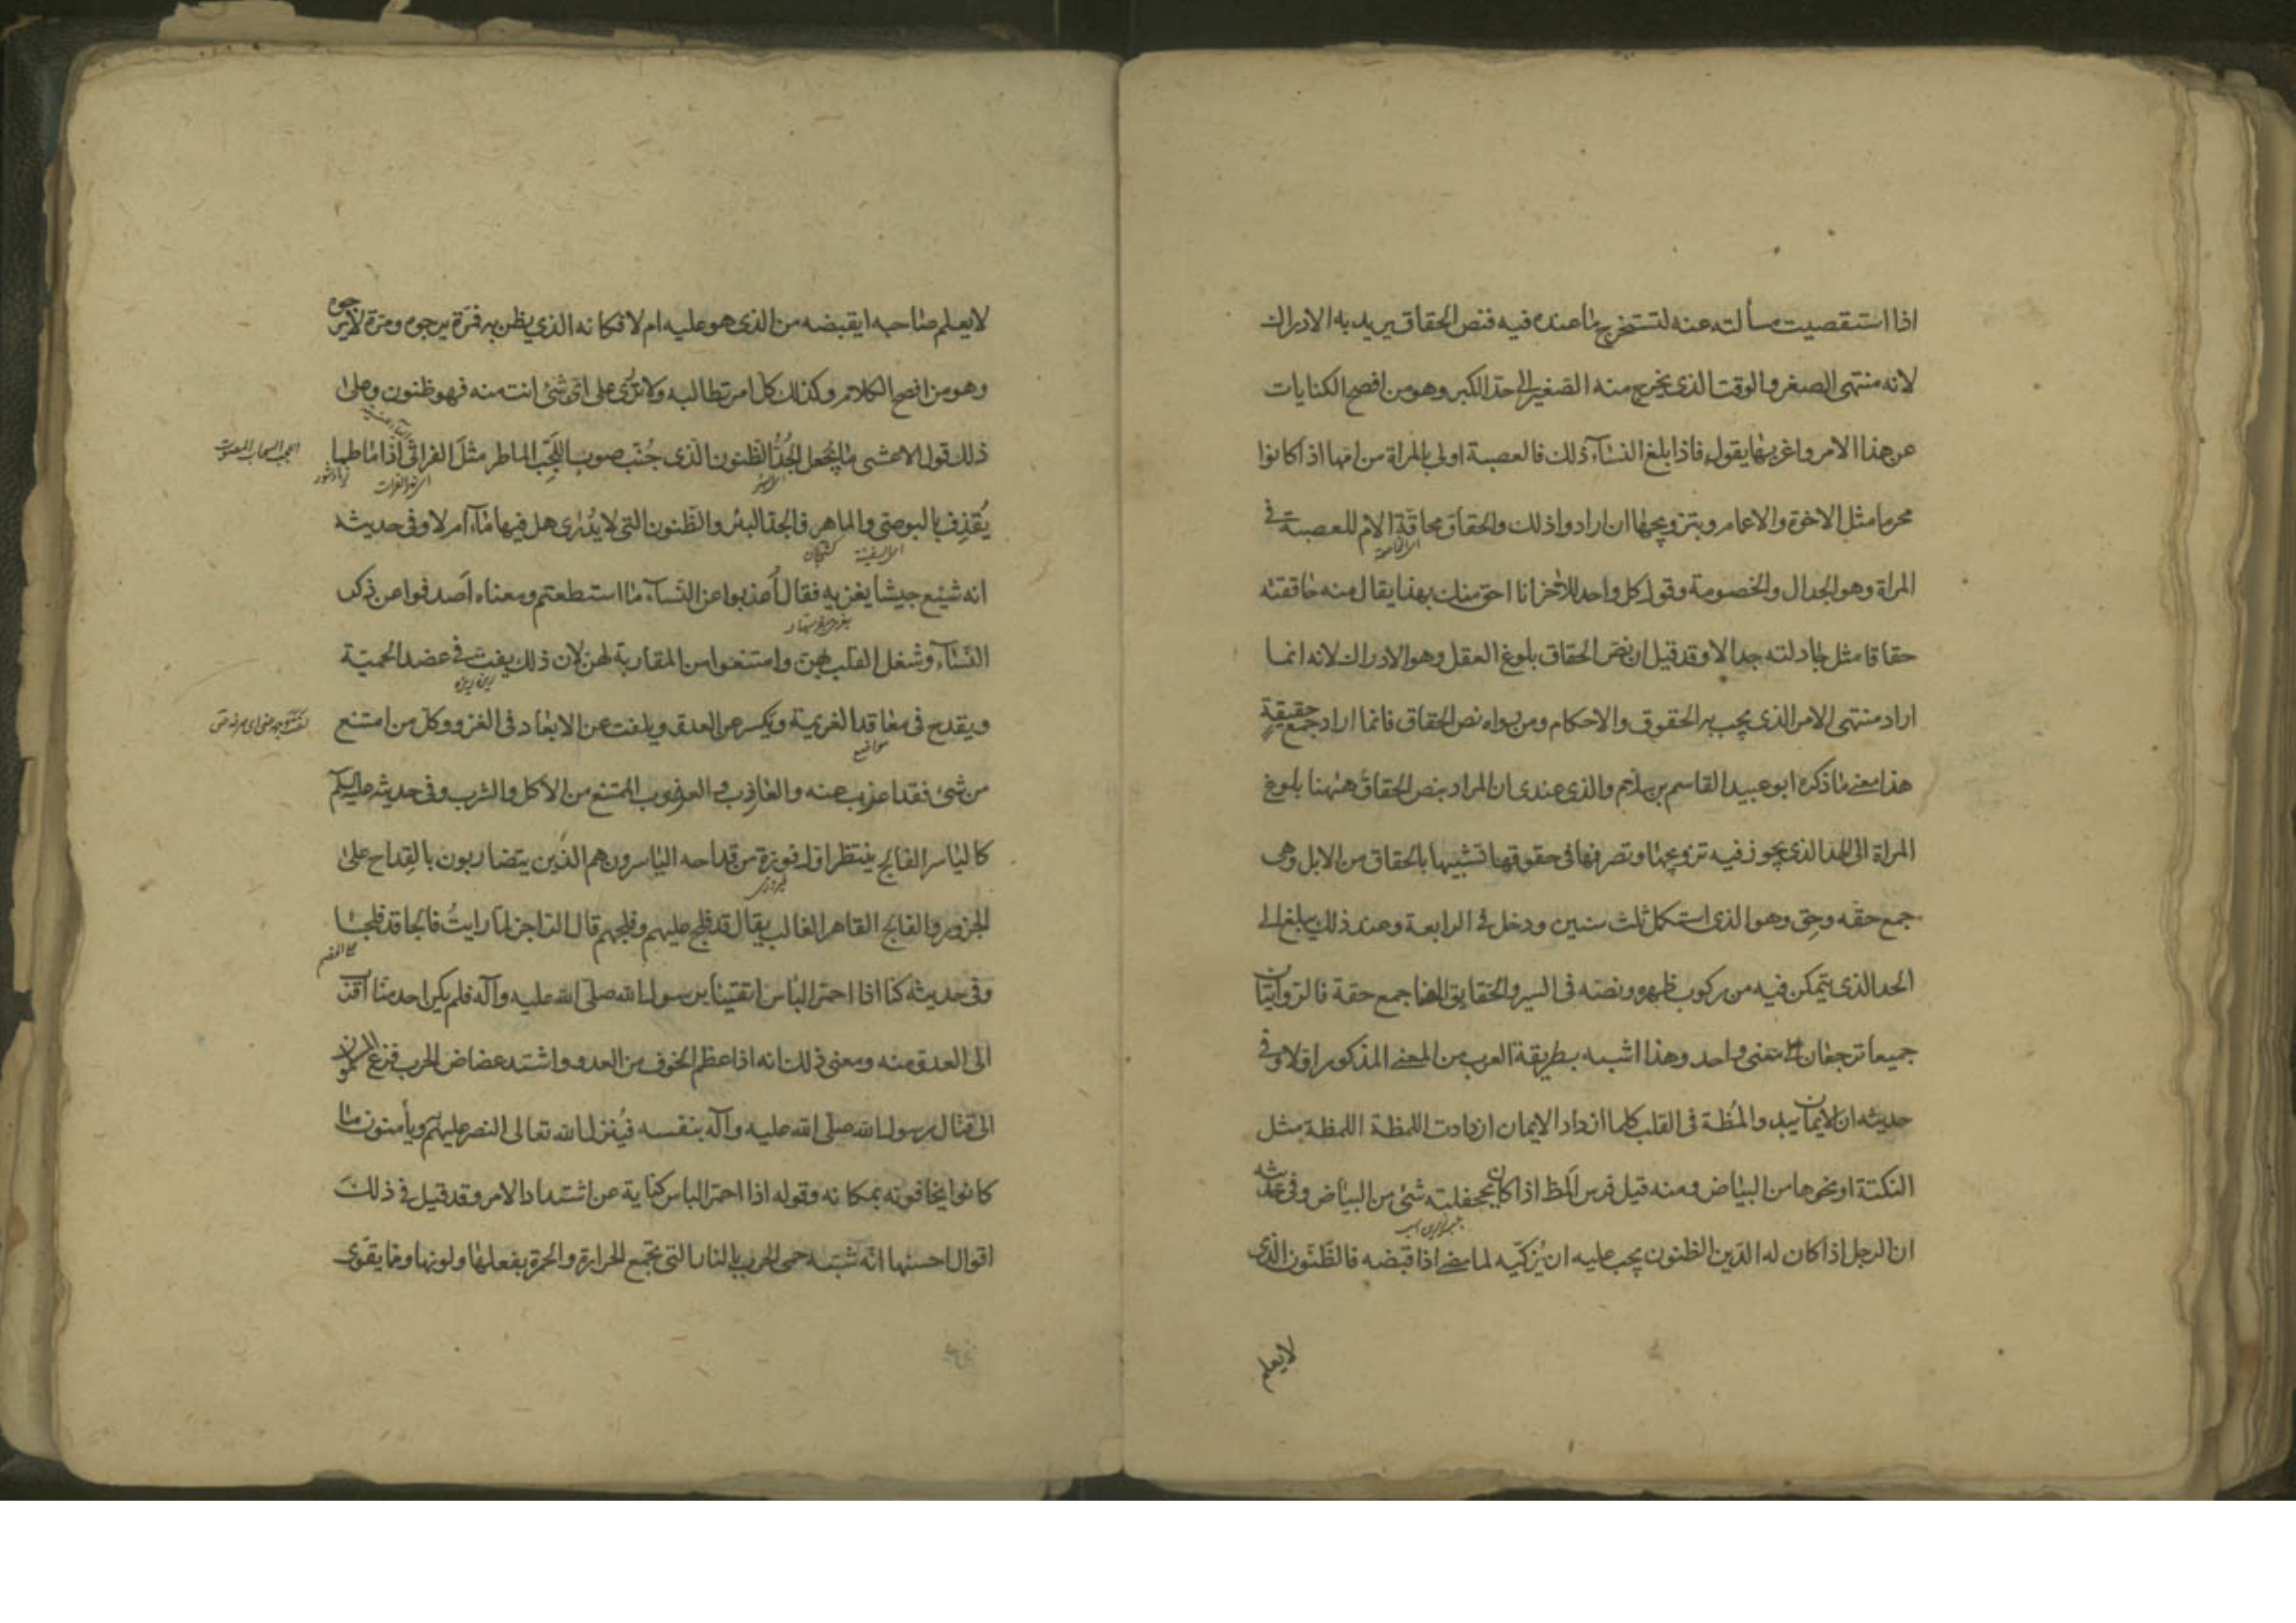 اذا استقصيت مسألته عنه لتستخرج ما عنده فيه فنص الحقاق يريد به الادراك
لانه منتهى الصغر والوقت الذى يخرج منه الصغير الى حد الكبر وهو من افصح الكنايات
عن هذا الامر واغربها يقول فاذا بلغ النساء ذلك فالعصبة اولى بالمراة من امها اذا كانوا
محرما مثل الاخوة والاعمام وبتزويجها ان ارادوا ذلك والحقاق محاقة الام للعصبة فى
المراة وهو الجدال والخصومة وقول كل واحد للاخر انا احق منك بهذا يقال منه حاققته
حقاقا مثل جادلته جدالا وقد قيل ان نص الحقاق بلوغ العقل وهو الادراك لانه انما
اراد منتهى الامر الذى يجب به الحقوق والاحكام ومن رواه نص الحقاق فانما اراد جمع حقيقة
هذا معنى ما ذكره ابو عبيد القاسم بن سلام والذى عندى ان المراد بنص الحقاق ههنا بلوغ
المراة الى الحد الذى يجوز فيه تزويجها وتصرفها فى حقوقها تشبيها بالحقاق من الابل وهى
جمع حقه وحق وهو الذى استكمل ثلث سنين ودخل فى الرابعة وعند ذلك يبلغ الى
الحد الذى يتمكن فيه من ركوب ظهره ونصه فى السير والحقايق ايضا جمع حقة فالروايتان
جميعا ترجعان الى معنى واحد وهذا اشبه بطريقة العرب من المعنى المذكور اولا وفى
حديثه ان الايمان يبدو لمظة فى القلب كلما ازداد الايمان ازدادت اللمظة اللمظة مثل
النكتة او نحوها من البياض ومنه قيل فرس المظ اذا كان بجحفلته شئ من البياض وفى حديثه
ان الرجل اذا كان له الدين الظنون يجب عليه ان يزكيه لما مضى اذا قبضه فالظنون الذى
لا يعلم
لا يعلم صاحبه ايقبضه من الذى هو عليه ام لا فكانه الذى يظن به فمرة يرجوه ومرة لا يرجوه
وهو من افصح الكلام وكذلك كل امر تطالبه ولا تدرى على اى شئ انت منه فهو ظنون وعلى
ذلك قول الاعشى ما يجعل الجُدُّ الظنون الذى جُنّب صوب اللجب الماطر مثلَ الفراتى اذا ما طما
يُقذِف بالبوصى والماهر فالجد البئر والظنون التى لا يُدرى هل فيها ماء ام لا وفى حديثه
انه شيع جيشا يغزيه فقال أعذبوا عن النساء ما استطعتم ومعناه اصدفوا عن ذكر
النساء وشغل القلب بهن وامتنعوا من المقاربة لهن لان ذلك يفت فى عضد الحمية
ويقدح فى معاقد العزيمة ويكسر عن العدو ويلفت عن الابعاد فى الغزو وكل من امتنع
من شئ فقد اعذب عنه والعاذب والعذوب الممتنع من الاكل والشرب وفى حديثه عليه السلم
كالياسر الفالج ينتظر اول فوزة من قداحه الياسرون هم الذين يتضاربون بالقِداح على
الجزور والفالج القاهر الغالب يقال قد فلج عليهم وفلجهم قال الراجز لما رايتُ فالجا قد فلجا
وفى حديثه كنا اذا احمر الباس اتقينا برسول الله صلى الله عليه وآله فلم يكن احد منا اقرب
الى العدو منه ومعنى ذلك انه اذا عظم الخوف من العدو واشتد عضاض الحرب فزع المسلمون
الى قتال رسول الله صلى الله عليه وآله بنفسه فينزل الله تعالى النصر عليهم ويأمنون ما
كانوا يخافونه بمكانه وقوله اذا احمر الباس كناية عن اشتداد الامر وقد قيل فى ذلك
اقوال احسنها انه شبه حمى الحرب بالنار التى تجمع الحرارة والحمرة بفعلها ولونها ومما يقوى